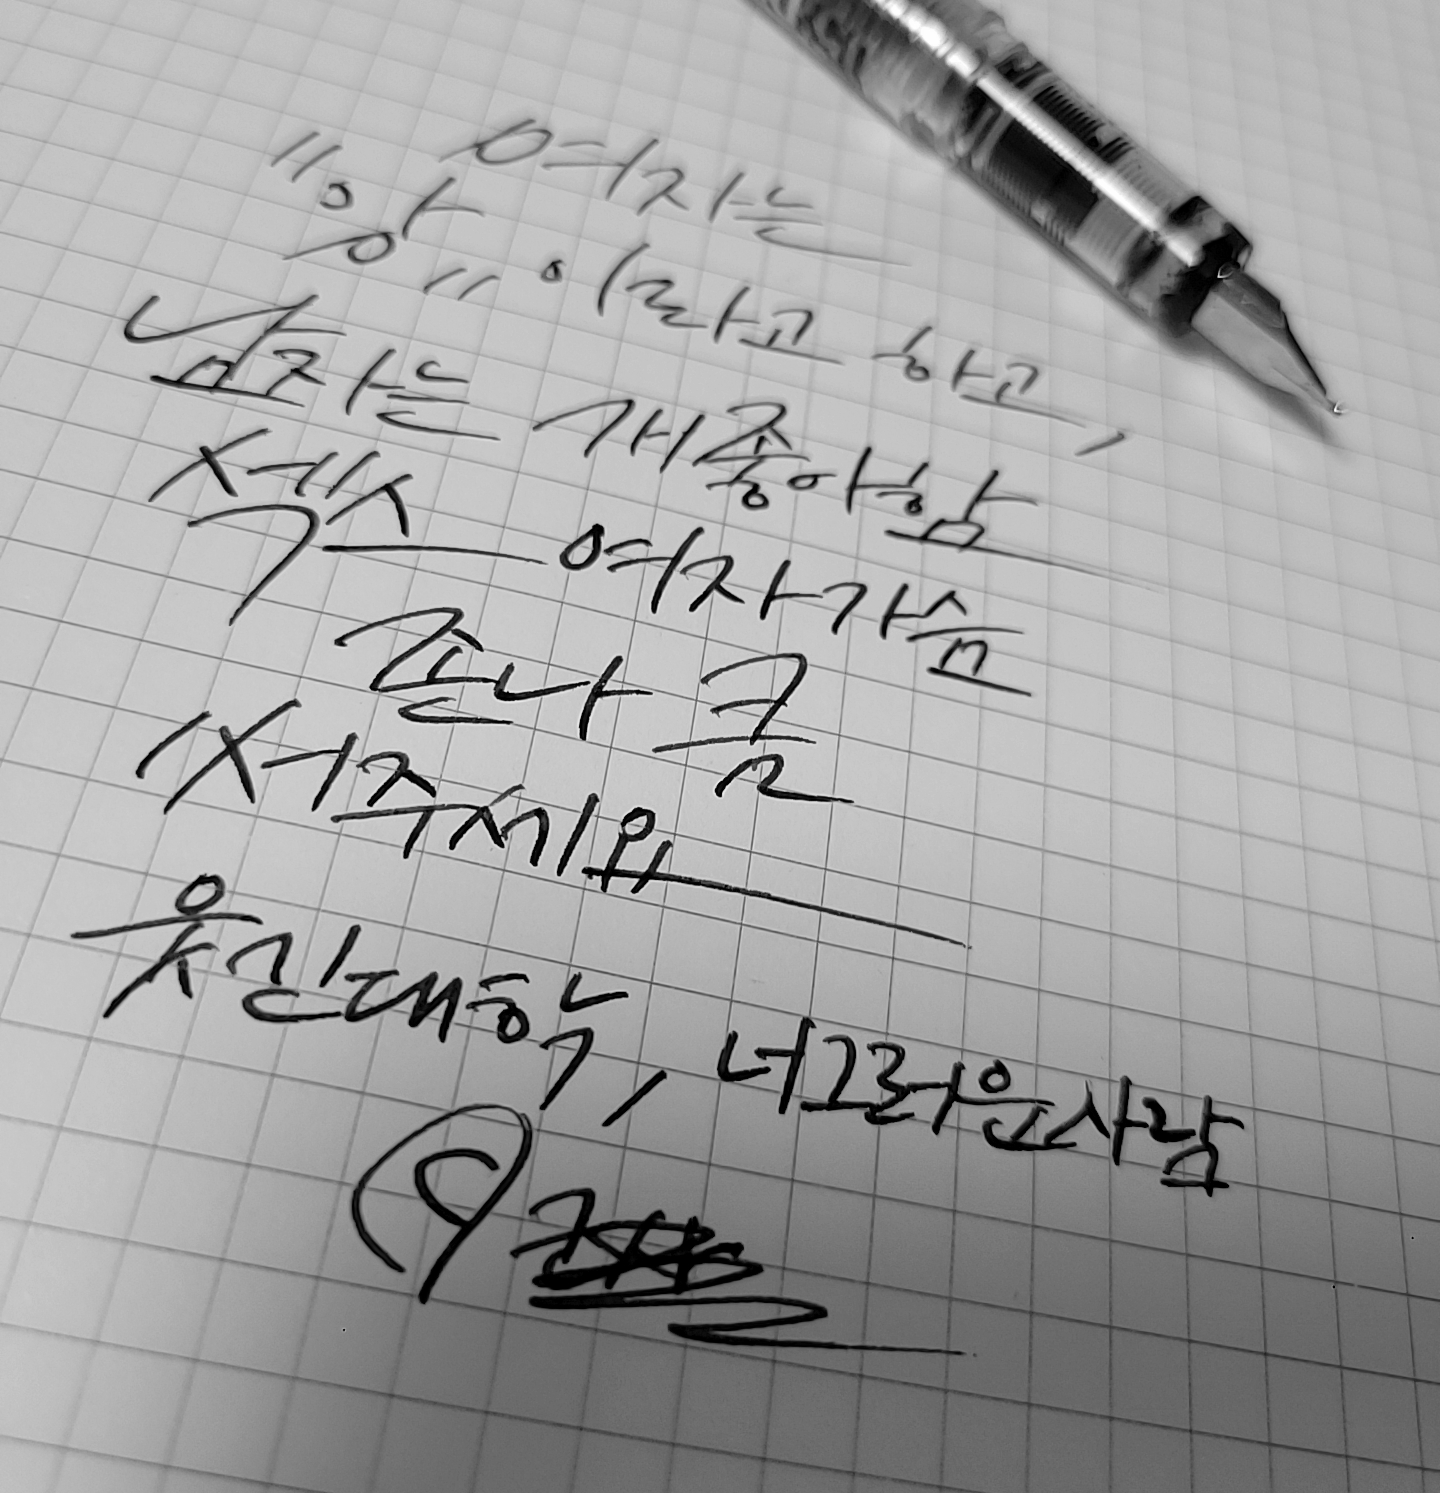 여자는
"앙"이라고 하고,
남자는 개좋아함
섹스 여자가슴
존나 큼
써주세요
웃긴대학, 너그러운사람